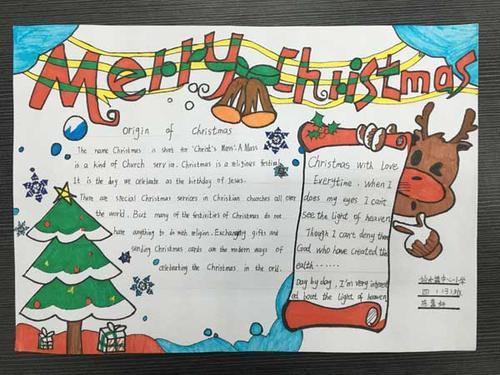 Merry Christmas
Origin of Christmas
The name Christmas is short for "Christ's Mass". A Mass
is a kind of Church service. Christmas is a religious festival
It is the day we celebrate as the birthday of Jesus.
There are special Christmas services in Christian churches all over
the world. But many of the festivities of Christmas do not
have anything to do with religion. Exchanging gifts and
sending Christmas cards are the modern ways of
celebrating the Christmas in the world.
Christmas with Love
Everytime, when I
close my eyes I can't
see the light of heaven
Though I can't deny then
God, who have created the
ealth......
Day by day, I'm very interest
ed bout the light of heaven
中心小学